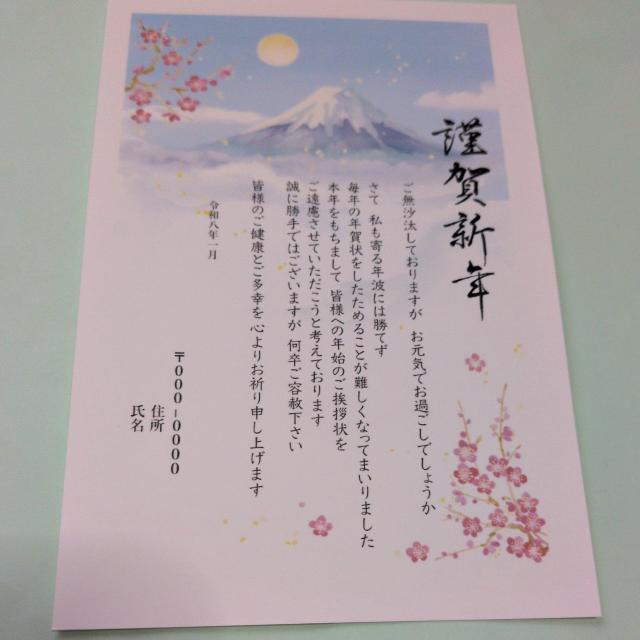 謹賀新年
ご無沙汰しておりますが　お元気でお過ごしでしょうか
さて　私も寄る年波には勝てず
毎年の年賀状をしたためることが難しくなってまいりました
本年をもちまして　皆様への年始のご挨拶状を
ご遠慮させていただこうと考えております
誠に勝手ではございますが　何卒ご容赦下さい
皆様のご健康とご多幸を　心よりお祈り申し上げます
令和八年一月
〒000-0000
住所
氏名